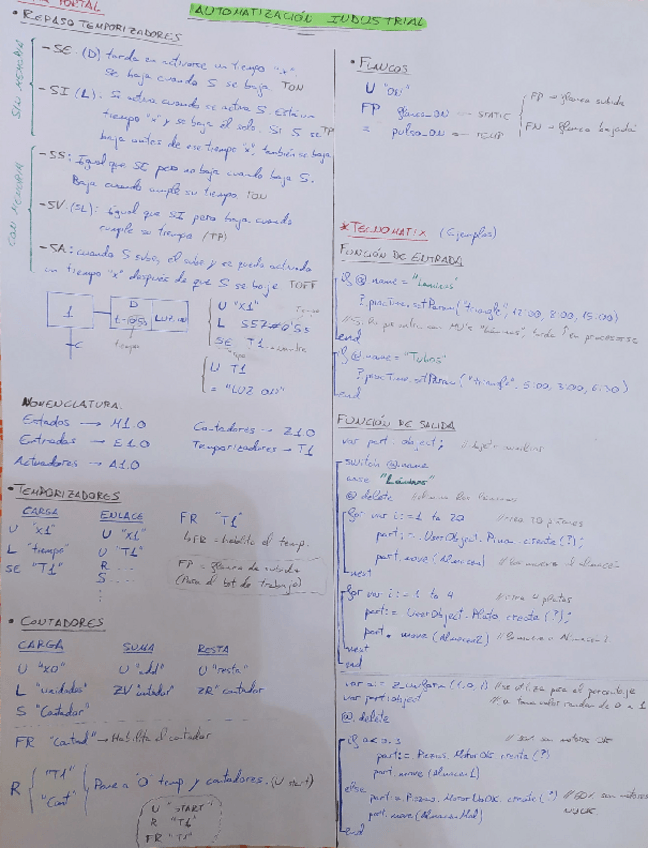 TIA PORTAL
AUTOMATIZACIÓN INDUSTRIAL
• REPASO TEMPORIZADORES
SIN MEMORIA
- SE (D) tarda en activarse un tiempo "x".
Se baja cuando S se baja TON
- SI (L). Se activa cuando se activa S. Está un
tiempo "x" y se baja él solo. Si S se TP
baja antes de ese tiempo "x", también se baja
CON MEMORIA
- SS: Igual que SE pero no baja cuando baja S.
Baja cuando cumple su tiempo TON
- SV. (SL): igual que SI pero baja cuando
cumple su tiempo (TP)
- SA: cuando S sube, el sube y se queda activado
un tiempo "x" después de que S se baje TOFF
1
D
LUZ ON
tiempo
C
U "X1"
L S5T#0'5s
SE T1
U T1
= "LUZ ON"
NOMENCLATURA.
Estados → M1.0
Entradas → E1.0
Actuadores → A1.0
Contadores → Z1.0
Temporizadores → T1
• TEMPORIZADORES
CARGA
U "X1"
L "tiempo"
SE "T1"
ENLACE
U "X1"
U "T1"
R ...
S ...
FR "T1"
↳ FR = habilita el temp.
FP = flanco de subida
(Para el bit de trabajo)
• CONTADORES
CARGA
U "X0"
L "unidades"
S "Contador"
SUMA
U "add"
ZV "contador"
RESTA
U "resta"
ZR "contador"
FR "Contad" → Habilita el contador
R { "T1"
"Cont" } Pone a "0" temp y contadores. (U start)
U "START"
R "T1"
FR "T1"
• FLANCOS
U "ON"
FP flanco_ON — STATIC
= pulso_ON — TEMP
FP → flanco subida
FN → flanco bajada
* TECNOMATIX (Ejemplos)
FUNCIÓN DE ENTRADA
if @.name = "Láminas"
?.procTime.setParam("triangle", 12:00, 8:00, 15:00)
end
if @.name = "Tubos"
?.procTime.setParam("triangle", 5:00, 3:00, 6:30)
end
FUNCIÓN DE SALIDA
var part: object; // objeto auxiliar
switch @.name
case "Láminas"
@.delete
for var i:=1 to 20
part:= .UserObject.Pinza.create(?);
part.move(Almacen)
next
for var i:=1 to 4 // crea 4 platos
part:= UserObject.Plato.create(?);
part.move(Almacen2)
next
end
var a:= z_uniform(1,0,1) // se utiliza para el porcentaje
var part:object // a toma valor random de 0 a 1
@.delete
part:= Piezas.MotorOk.create(?)
part.move(Almacen1)
else
part:= Piezas.MotorNoOk.create(?)
part.move(AlmacenMal)
end